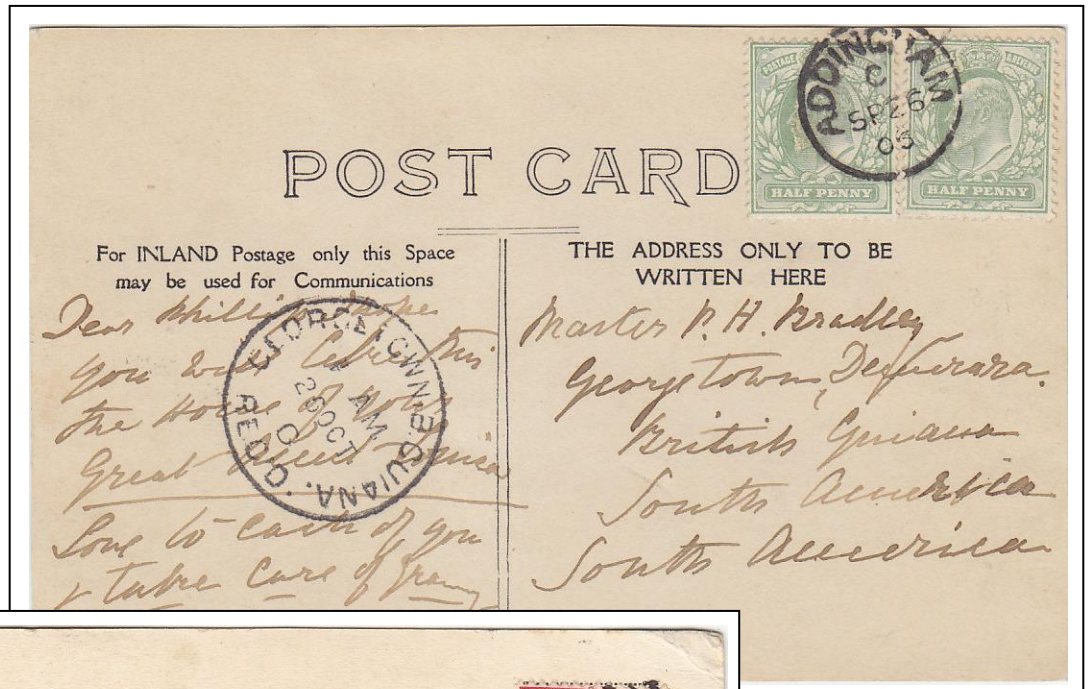 POST CARD
POSTAGE
& REVENUE
HALF PENNY
HALF PENNY
ADDINGHAM
C
SP 26
05
For INLAND Postage only this Space
may be used for Communications
Dear Phillip
you will like this
the House of your
Great Aunt Louisa
Love to each of you
& take care of
GEORGETOWN. B. GUIANA.
AM
26 OCT
REG'D.
THE ADDRESS ONLY TO BE
WRITTEN HERE
Master P. H. Bradley
Georgetown, Demerara.
British Guiana
South America
South America